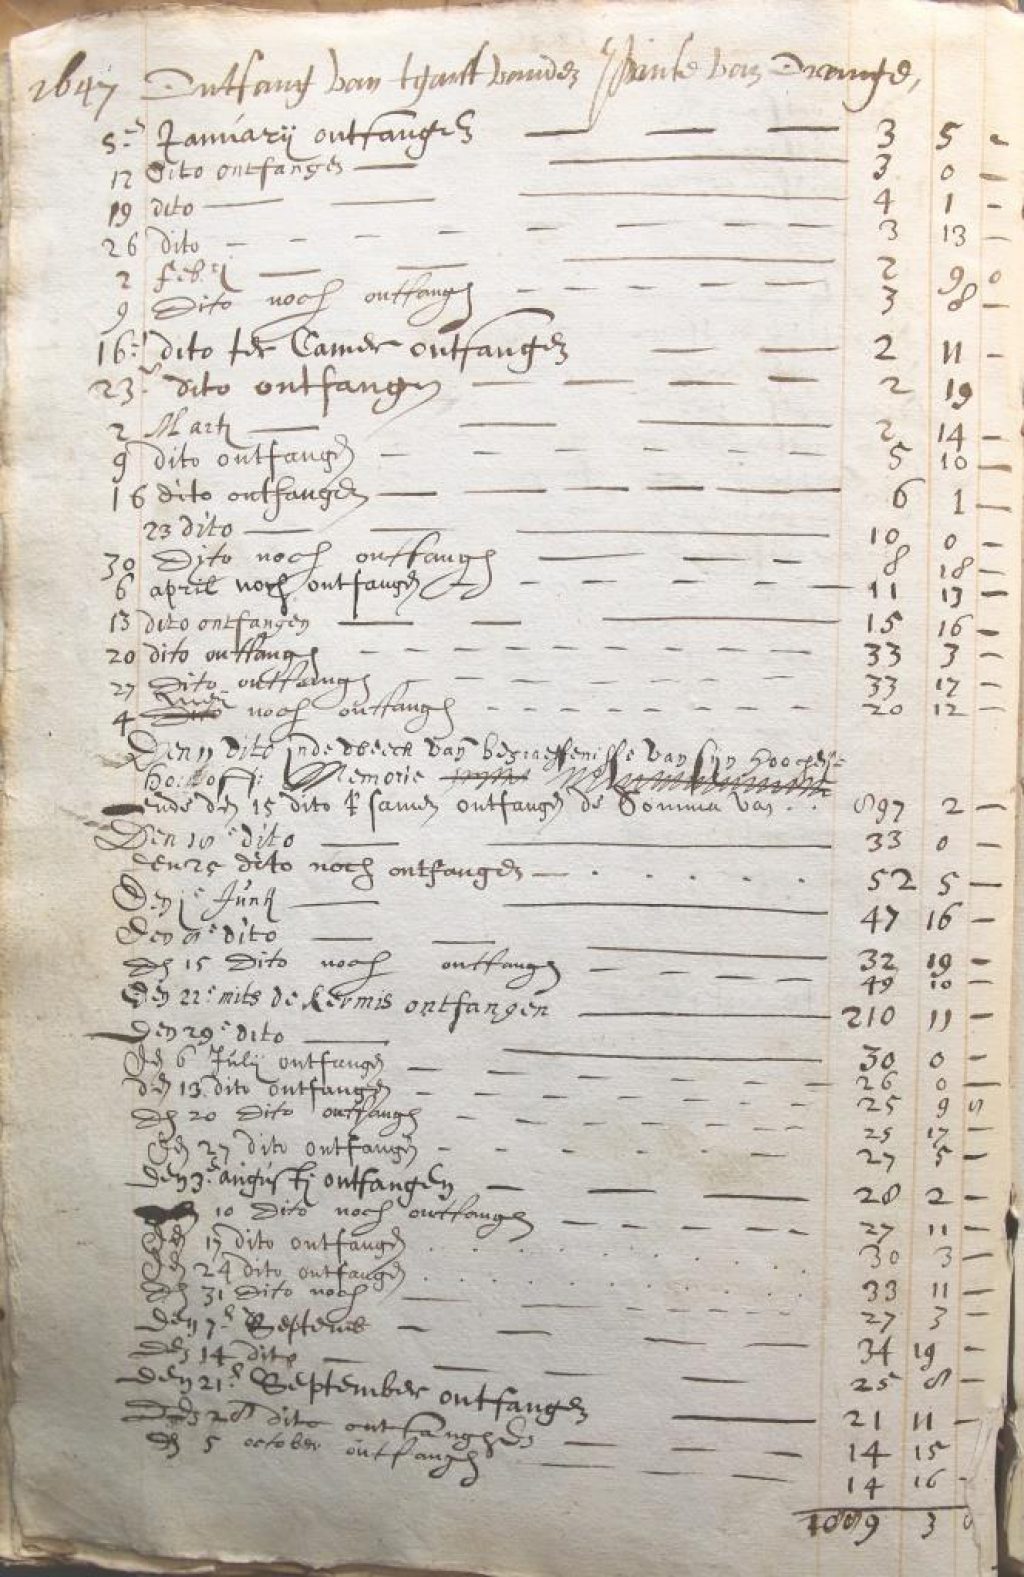 1647 Ontfang van tgraft vanden Prinse van Orange,
5en Januarij ontfangen 3 5 -
12 Dito ontfangen 3 0 -
19 dito 4 1 -
26 dito 3 13 -
2 feb.rij 2 9 0
9 Dito noch ontfangen 3 8 -
16en dito ter Camer ontfangen 2 11 -
23en dito ontfangen 2 19
2 Martj 2 14 -
9 dito ontfangen 5 10 -
16 dito ontfangen 6 1 -
23 dito 10 0 -
30 Dito noch ontfangen 8 18 -
6 april noch ontfangen 11 13 -
13 dito ontfangen 15 16 -
20 dito ontfangen 33 3 -
27 Dito ontfangen 33 17 -
4 noch ontfangen 20 12 -
Den 11 dito inde weeck van begraeffenisse van sijn hoocheijt
Memorie
ende den 15 dito tsamen ontfangen de Somma van 897 2 -
Den 18e dito 33 0 -
den 25 dito noch ontfangen 52 5 -
Den 1e Junij 47 16 -
Den 8e dito 32 19 -
den 15 Dito noch ontfangen 49 10 -
Den 22e mits de kermis ontfangen 210 11 -
Den 29e dito 30 0 -
den 6 Julij ontfangen 26 0 -
den 13 dito ontfangen 25 9 8
den 20 Dito ontfangen 25 17 -
den 27 dito ontfangen 27 5 -
Den 3en augustj ontfangen 28 2 -
10 Dito noch ontfangen 27 11 -
den 17 dito ontfangen 30 3 -
den 24 dito ontfangen 33 11 -
den 31 Dito noch 27 3 -
den 7en Septemb 34 19 -
den 14 dito 25 8 -
den 21en September ontfangen 21 11 -
den 28 dito ontfangen 14 15
den 5 october ontfangen 14 16 -
1889 3 8